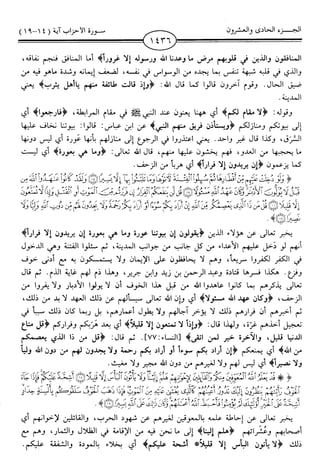 الجـــزء الحادى والعشرون
١٤٣٦
سـورة الأحزاب آية (١٤-١٩)
المنافقون والذين في قلوبهم مرض ما وعدنا الله ورسوله إلا غروراً﴾ أما المنافق فنجم نفاقه،
والذي في قلبه شبهة تنفس بما يجده من الوسواس في نفسه، لضعف إيمانه وشدة ماهو فيه من
ضيق الحال. وقوم آخرون قالوا كما قال الله: ﴿وإذ قالت طائفة منهم ياأهل يثرب﴾ يعني
المدينة.
وقوله: ﴿لا مقام لكم﴾ أي ههنا يعنون عند النبي ﷺ في مقام المرابطة، ﴿فارجعوا﴾ أي
إلى بيوتكم ومنازلكم ﴿ويستأذن فريق منهم النبي﴾ عن ابن عباس: قالوا: بيوتنا نخاف عليها
السُرَّق، وكذا قال غير واحد. يعني اعتذروا في الرجوع إلى منازلهم بأنها عَورة أي ليس دونها
ما يحجبها من العدو، فهم يخشون عليها منهم، قال الله تعالى: ﴿وما هي بعورة﴾ أي ليست
كما يزعمون ﴿إن يريدون إلا فراراً﴾ أي هرباً من الزحف.
يخبر تعالى عن هؤلاء الذين ﴿يقولون إن بيوتنا عورة وما هي بعورة إن يريدون إلا فراراً﴾
أنهم لو دَخل عليهم الأعداء من كل جانب من جوانب المدينة، ثم سئلوا الفتنة وهي الدخول
في الكفر لكفروا سريعاً، وهم لا يحافظون على الإيمان ولا يستمسكون به مع أدنى خوف
وفزع. هكذا فسرها قتادة وعبد الرحمن بن زيد وابن جرير، وهذا ذم لهم غاية الذم. ثم قال
تعالى يذكرهم بما كانوا عاهدوا الله من قبل هذا الخوف أن لا يولوا الأدبار ولا يفروا من
الزحف، ﴿وكان عهد الله مسئولاً﴾ وإن الله تعالى سيسألهم عن ذلك العهد لا بد من ذلك،
ثم أخبرهم أن فرارهم ذلك لا يؤخر آجالهم ولا يطول أعمارهم، بل ربما كان ذلك سبباً في
تعجيل أخذهم غرّة، ولهذا قال: ﴿وإذاً لا تمتعون إلا قليلاً﴾ أي بعد هربكم وفراركم ﴿قل متاع
الدنيا قليل، والآخرة خير لمن اتقى﴾ [النساء:٧٧]. ثم قال: ﴿قل من ذا الذي يعصمكم
من الله﴾ أي يمنعكم ﴿إن أراد بكم سوءاً أو أراد بكم رحمة ولا يجدون لهم من دون الله ولياً
ولا نصيراً﴾ أي ليس لهم ولا لغيرهم من دون الله مجير ولا مغيث.
يخبر تعالى عن إحاطة علمه بالمعوقين لغيرهم عن شهود الحرب، والقائلين لإخوانهم أي
أصحابهم وعُشرائهم ﴿هلم إلينا﴾ إلى ما نحن فيه من الإقامة في الظلال والثمار، وهم مع
ذلك ﴿لا يأتون البأس إلا قليلاً* أشحة عليكم﴾ أي بخلاء بالمودة والشفقة عليكم.